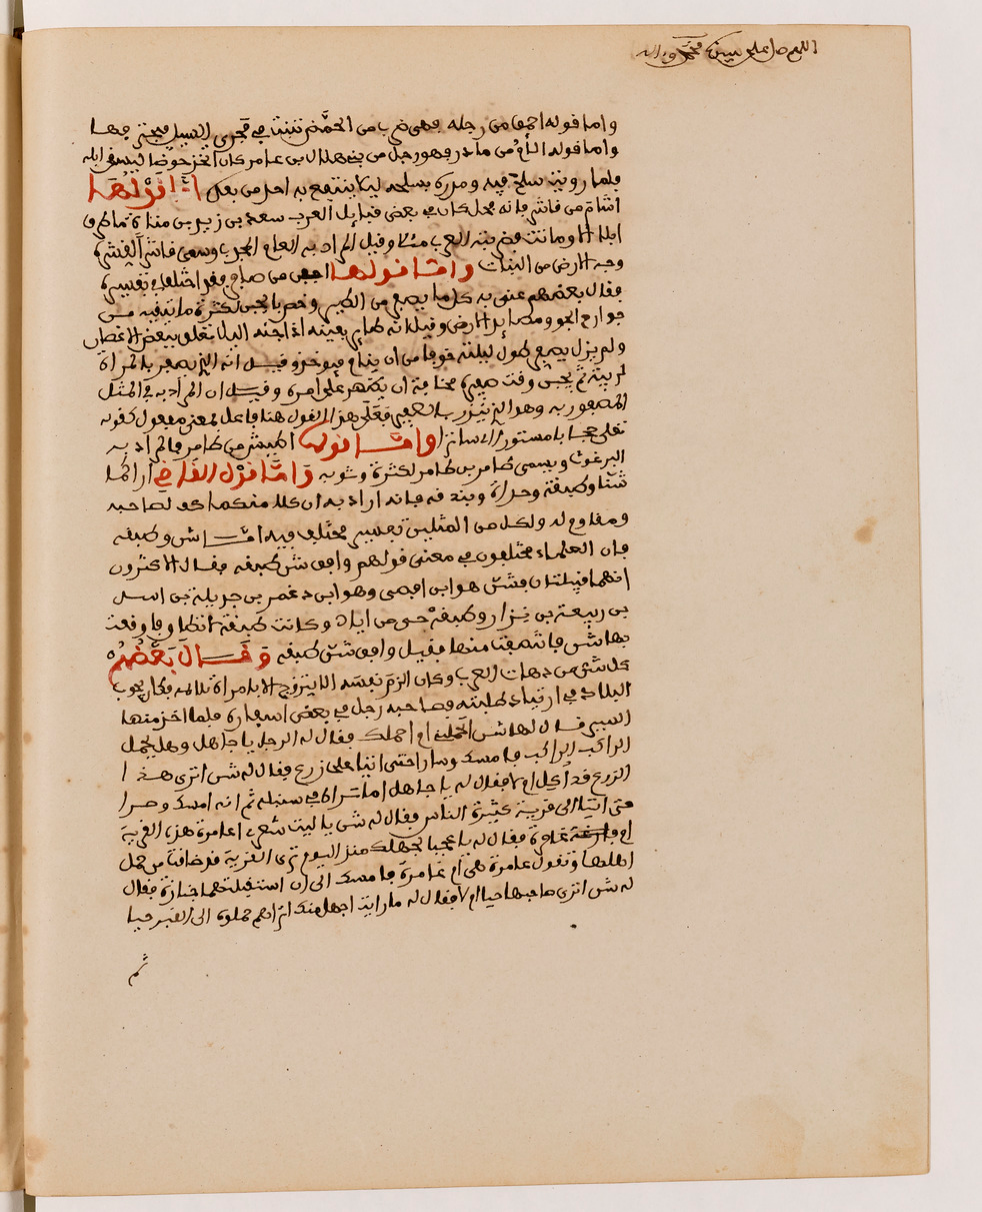 اللهم صل على سيدنا محمد وءاله
واما قوله احمق من رجلة فهي ضرب من الحمض تنبت في مجرى السيل فيجترفها
واما قوله الأم من مادر فهو رجل من بني هلال بن عامر كان اتخذ حوضا ليسقى ابله
فلما رويت سلح فيه ومدره بسلحه ليلا ينتفع به احد من بعده امّا قَوْلُهَا
اشام من قاشر فانه فحل كان في بعض قبايل العرب سعد بن زيد بن مناة ما طرق
ابلا الا وماتت فضربته العرب مثلا وقيل المراد به العام المجدب وسمي قاشرا لقشره
وجه الارض من النبات وامّا قولها اجبن من صافر فقد اختلف في تفسيره
فقال بعضهم عنى به كل ما يصفر من الطير وخص بالجبن لكثرة ما يتقيه من
جوارح الجو ومصايد الارض وقيل انه طاير بعينه اذا جنه الليل تعلق ببعض الاغصان
ولم يزل يصفر طول ليلته خوفا من ان ينام فيوخذ وقيل انه الذي يصفر بالمراة
لريبة ثم يجبن وقت صفيره مخافة ان يظهر على امره وقيل ان المراد به في المثل
المصفور به وهو الذي ينذر بالصفير فعلى هذا القول هنا فاعل بمعنى مفعول كقوله
تعلى حجابا مستورا اي ساترا وامّا قوله اطيش من طامر فالمراد به
البرغوث ويسمى طامر بن طامر لكثرة وثوبه وَامَّا قَوْل القاضي اراكما
شنا وطبقة وحداة وبندقة فانه اراد به ان كلا منكما كفو لصاحبه
ومقاوم له ولكل من المثلين تفسير مختلف فيه امّا شن وطبقه
فان العلماء مختلفون في معنى قولهم وافق شن طبقه فقال الاكثرون
انهما قبيلتان فشن هو ابن افصى وهو ابن دعمر بن جديلة بن اسد
بن ربيعة بن نزار وطبقة حي من اياد وكانت طبقة لا تطاق فاوقعت
بها شن فانتصفت منها فقيل وافق شن طبقه وَقَالَ بَعْضُهُم
كان شن من دهات العرب وكان الزم نفسه الا يتزوج الا بامراة تلايمه فكان يجوب
البلاد في ارتياد طلبته فصاحبه رجل في بعض اسفاره فلما اخذ منهما
السير قال لها شن اتحملني ام احملك فقال له الرجل يا جاهل وهل يحمل
الراكب الراكب فامسك وسارا حتى اتيا على زرع فقال له شن اترى هذا
الزرع قد أكل ام لا فقال له يا جاهل اما تراه في سنبله ثم انه امسك وصرا
حتى اتيا الى قرية كثيرة الناس فقال له شن يا ليت شعري اعامرة هذه القرية
ام غامرة فقال له يا عجبا لجهلك منذ اليوم ترى القرية قد ضاقت من حمل
اهلها وتقول عامرة هي ام غامرة فامسك الى ان استقبلتهما جنازة فقال
له شن اترى صاحبها حيا ام لا فقال له ما رايت اجهل منك اتراهم حملوه الى القبر حيا
ثم